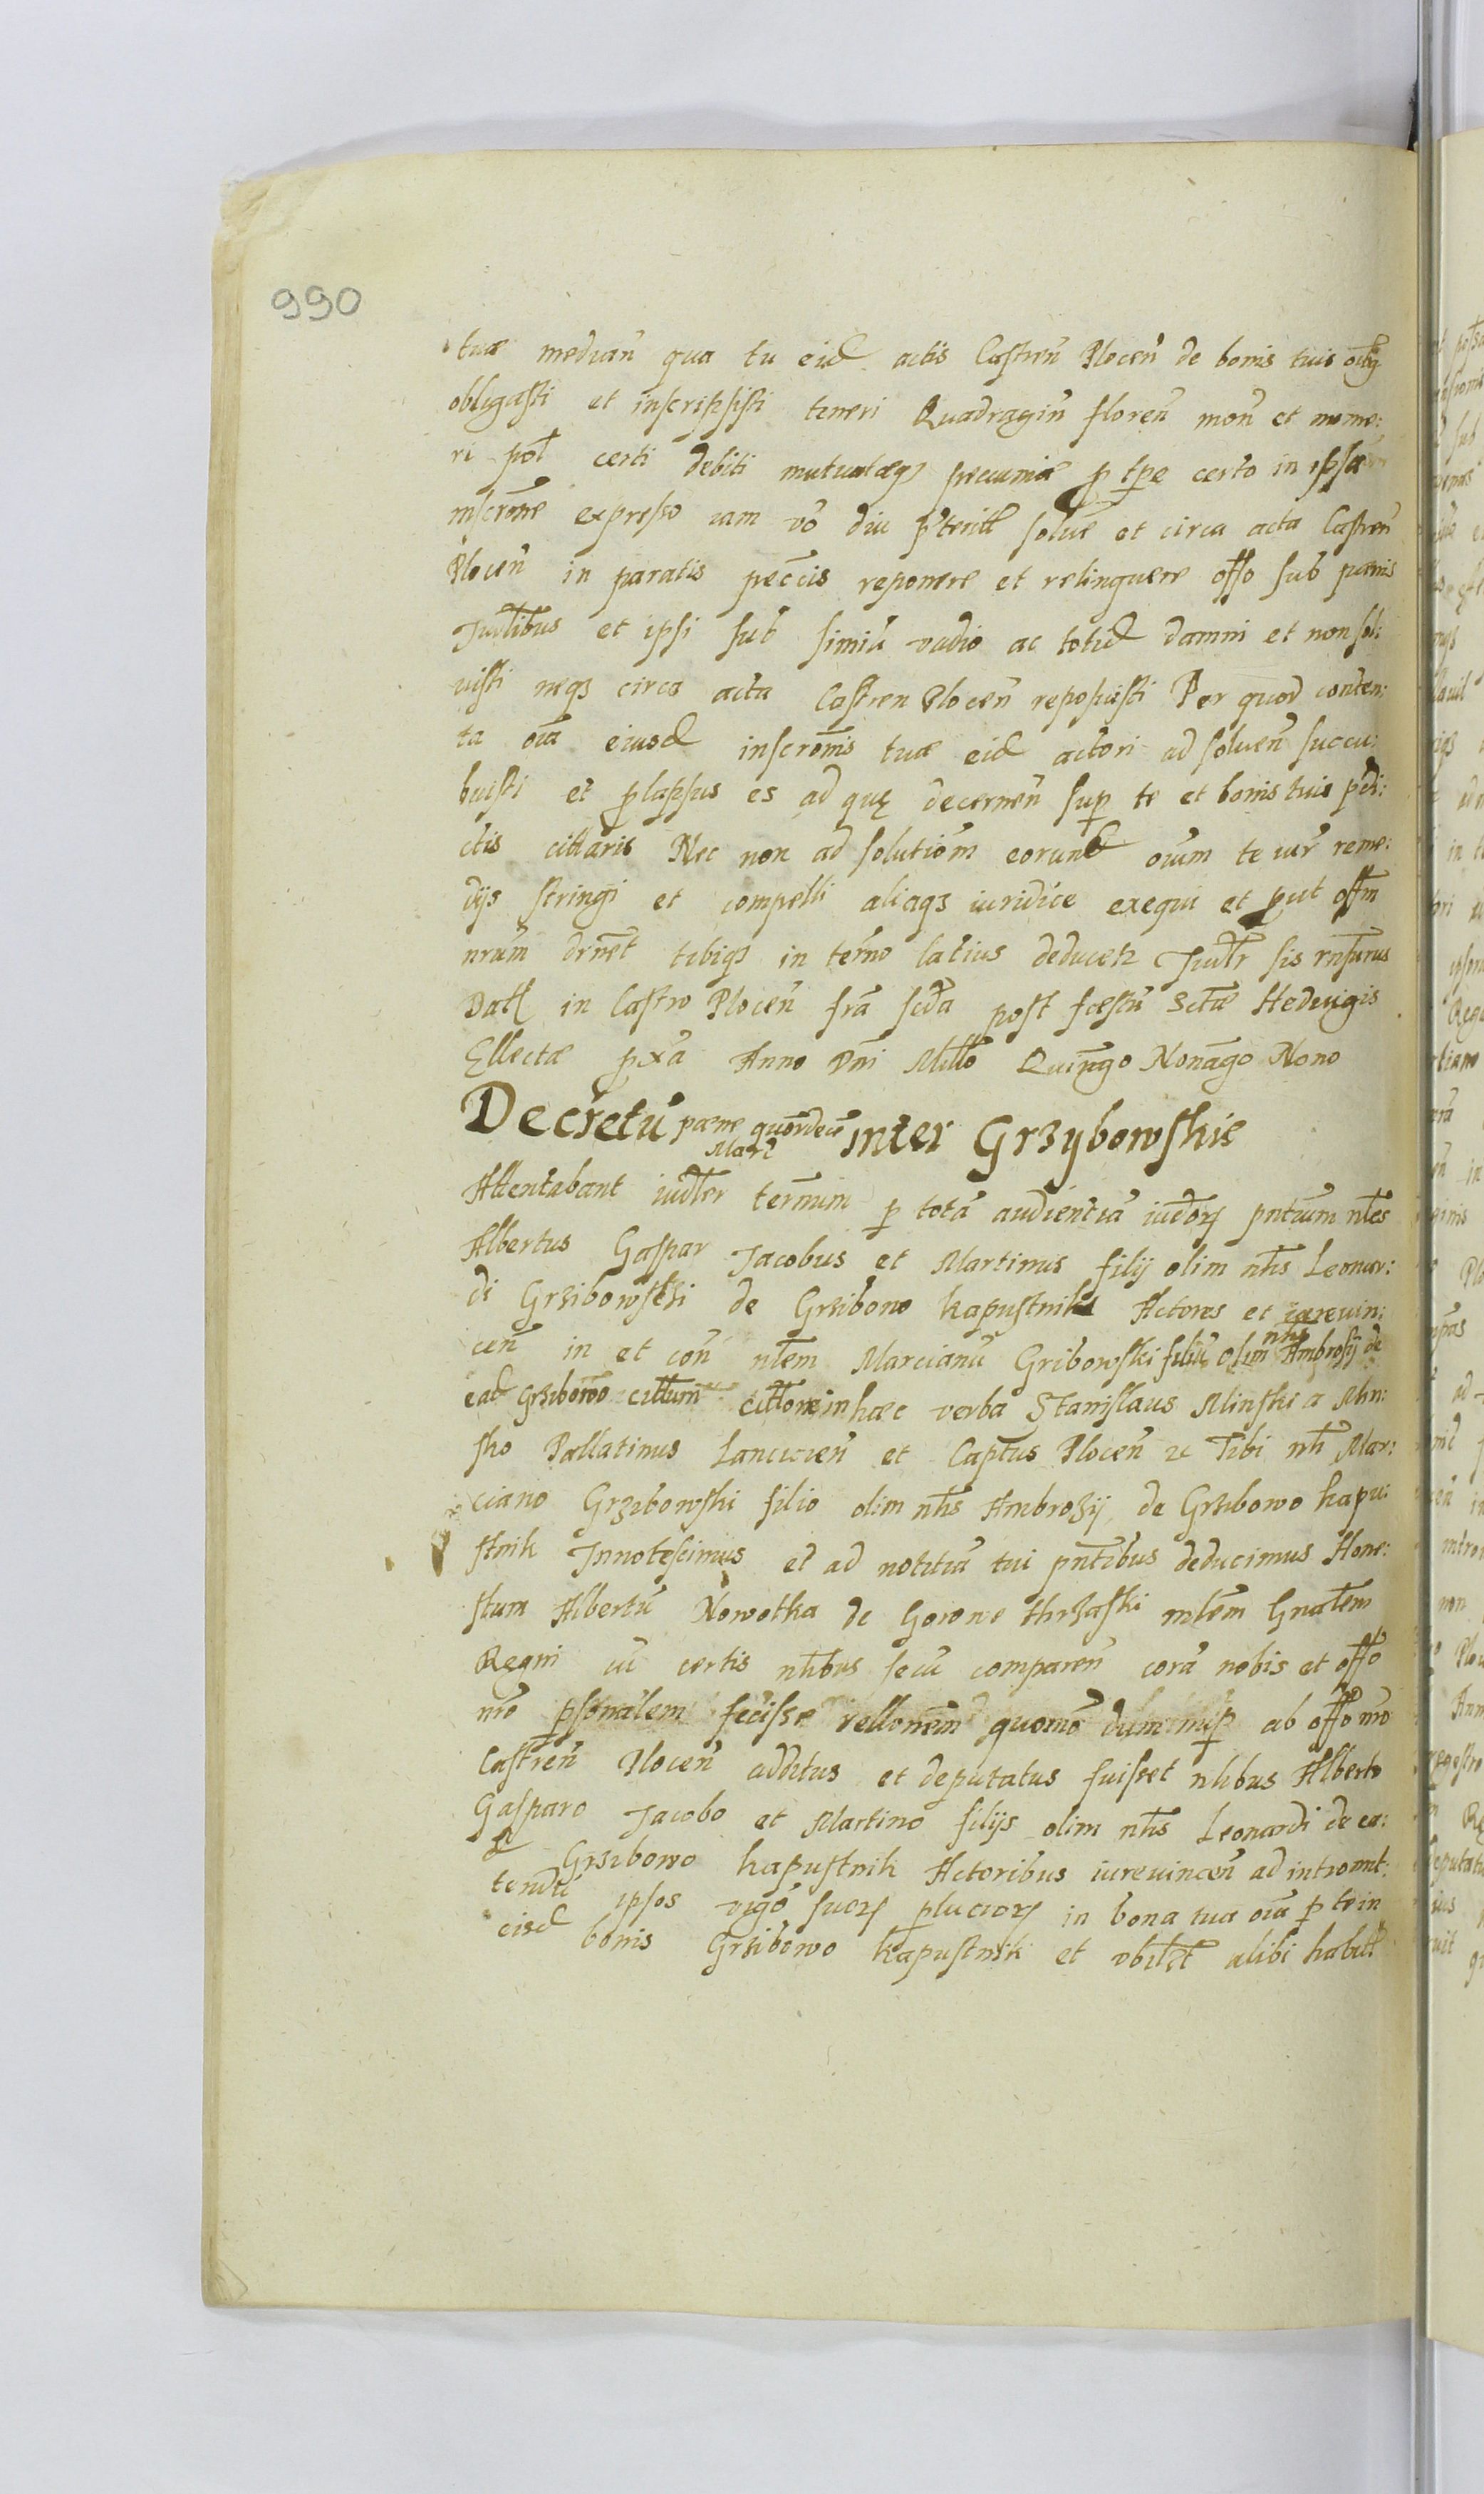 990
tuæ median̄ qua tu eid actis Castren̄ Plocen̄ de bonis tuis oibꝫ
obligasti et inscripsisti teneri Quadragin̄ floren̄ mon̄ et nume:
ri pol certi debiti mutuatæqꝫ pecuniæ p tpe certo in ipsa
inscrōne expresso iam vō diu pterit solue et circa acta Castren̄
Plocen̄ in paratis peccīs reponere et relinquere offo sub pœnis
Iudlibus et ipsi sub simili vadio ac totid damni et non sol:
uisti neqꝫ circa acta Castren Plocen̄ reposuisti Per quod conten:
ta oīa eiusd inscrōnis tuæ eid actori ad soluen̄ succu:
buisti et plapsus es ad quę decernen̄ sup te et bonis tuis pdi:
ctis cittaris Nec non ad solutiōm eorund oium te iur reme:
dijs stringi et compelli aliaqꝫ iuridice exequi et put offm
nrum drnet tibiqꝫ in termo latius deducetr Iudlr sis rnsurus
Datt in Castro Plocen̄ fra scda post festū Sctæ Heduigis
Ellectæ pxa Anno Dni Millo Quingo Nonago Nono
Decretū pœnæ quordecī Marc inter Grzybowskie
Attentabant iudler terminum p totā audientiā iudorꝫ pntium nles
Albertus Gaspar Jacobus et Martinus filij olim nlis Leonar:
di Grzibowski de Grzibowo kapustnik Actores et iureuin:
cen̄ in et con̄ nlem Marcianū Gribowski filiū olim nlis Ambrosij de
ead Grzibowo cittum cittone in hæc verba Stanislaus Minski a Min:
sko Pallatinus Lancicien̄ et Captus Plocen̄ ꝛc Tibi nli Mar:
ciano Grzibowski filio olim nlis Ambrozij de Grzibowo kapu:
stnik Innotescimus et ad notitiā tui pntibus deducimus Hone:
stum Albertū Nowotka de Gorone thrzaski mlem Gnalem
Regni cū certis nlibus secū comparen̄ corā nobis et offo
nro psonalem fecisse rellonem quomo dum nup ab offo nro
Castren̄ Plocen̄ additus et deputatus fuisset nlibus Alberto
Gasparo Jacobo et Martino filijs olim nlis Leonardi de ea:
d Grzibowo kapustnik Actoribus iureuincen̄ ad intromit:
tendū ipsos vigō suorꝫ plucrorꝫ in bona tua oia p te in
eisd bonis Grzibowo kapustnik et vbilet alibi habit